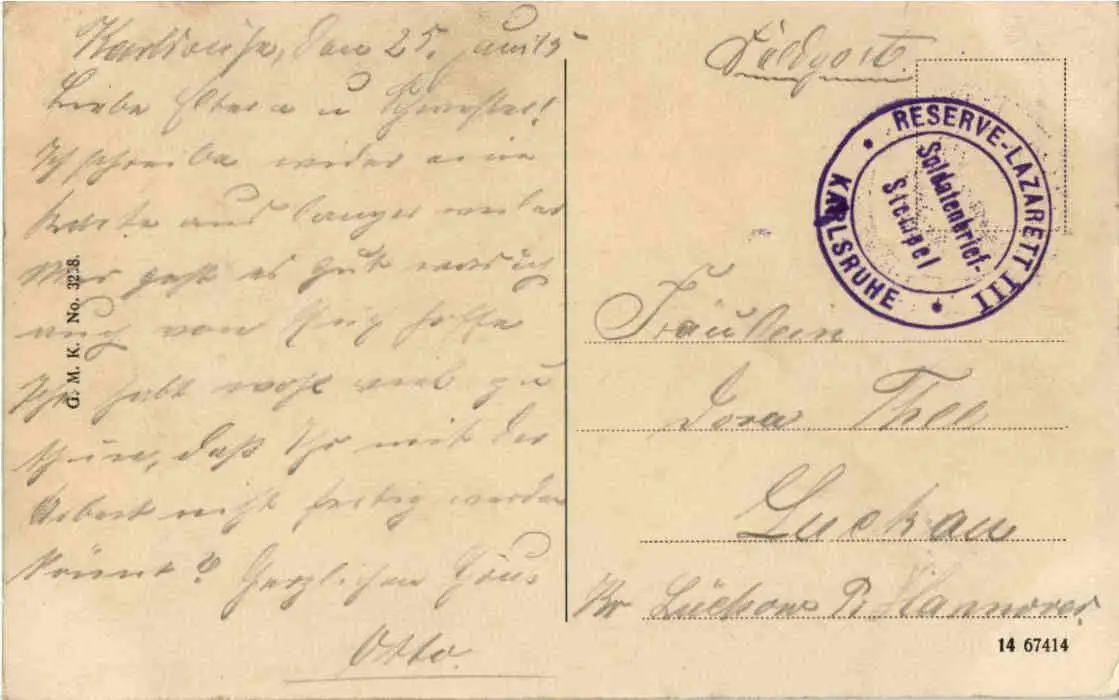 Karlsruhe, den 25. Juni 15
Liebe Eltern u Schwester!
Ich schreibe wieder eine
Karte aus langer weile
Mir geht es gut was ich
auch von Euch hoffe
Ihr habt wohl viel zu
thun, daß Ihr mit der
Arbeit nicht fertig werden
könnt? Herzlichen Grus
Otto.
G. M. K. No. 3218.
Feldpost.
RESERVE-LAZARETT III
KARLSRUHE
Soldatenbrief-
Stempel
Fräulein
Dora Thee
Luckau
Kr Lüchow P. Hannover
14 67414